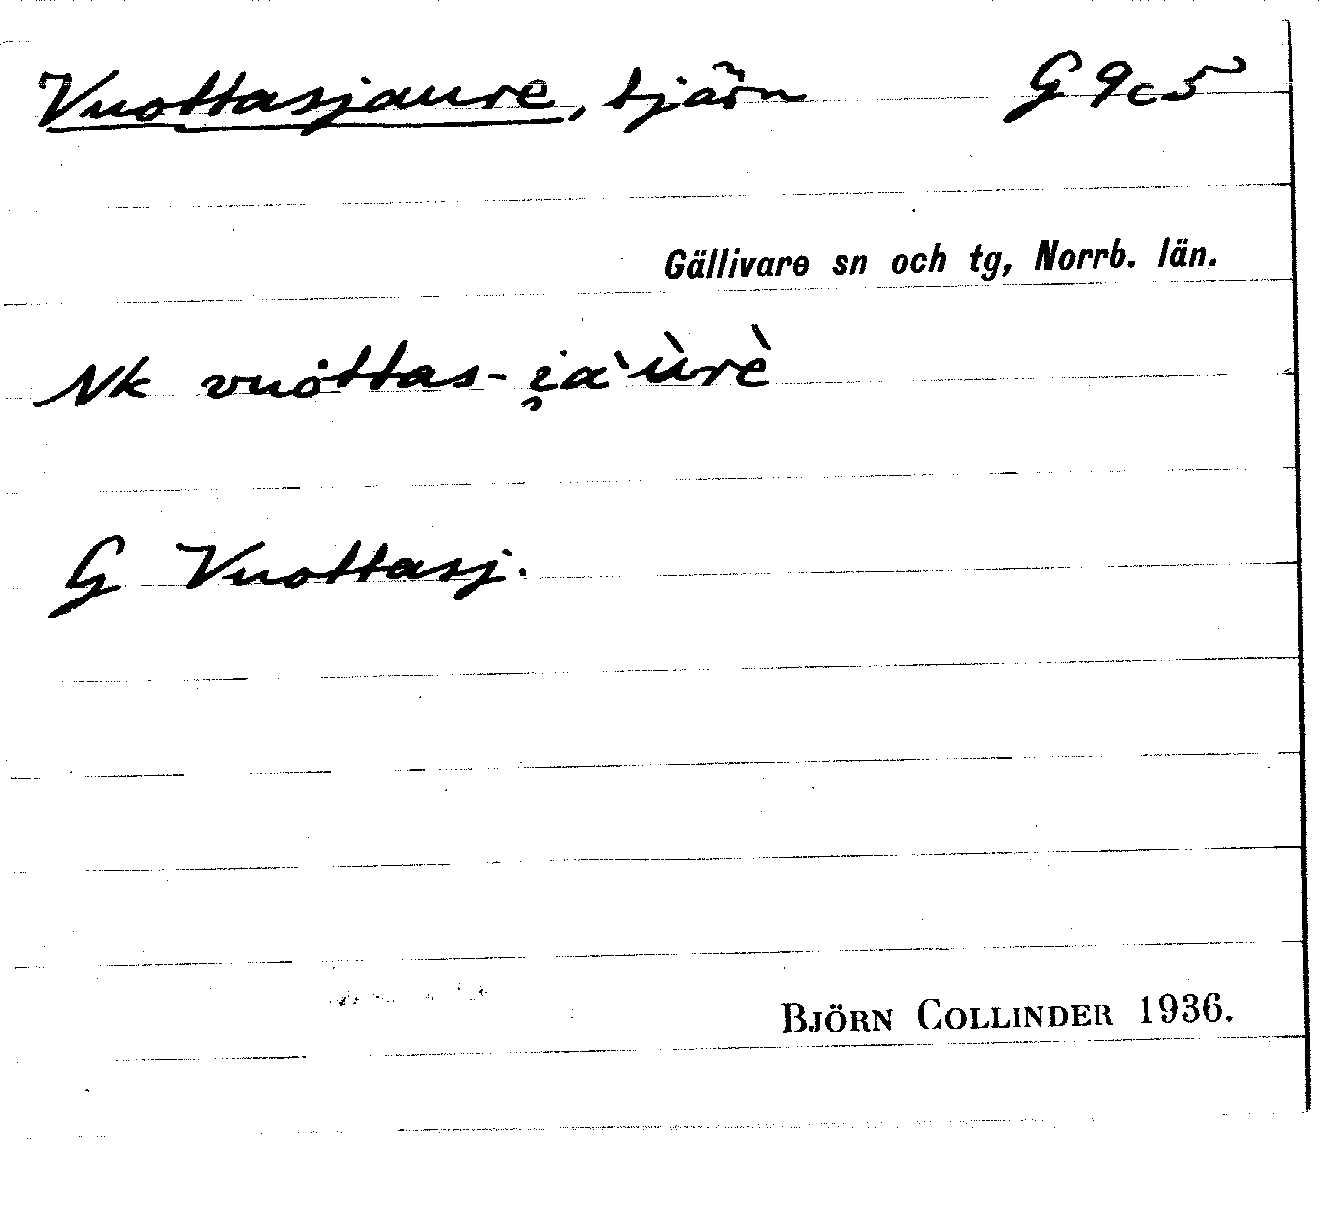 Vuottasjaure, tjärn G 9c5
Gällivare sn och tg, Norrb. län.
Nk vuȯttas-i̯a`ùrè
G Vuottasj.
BJÖRN COLLINDER 1936.